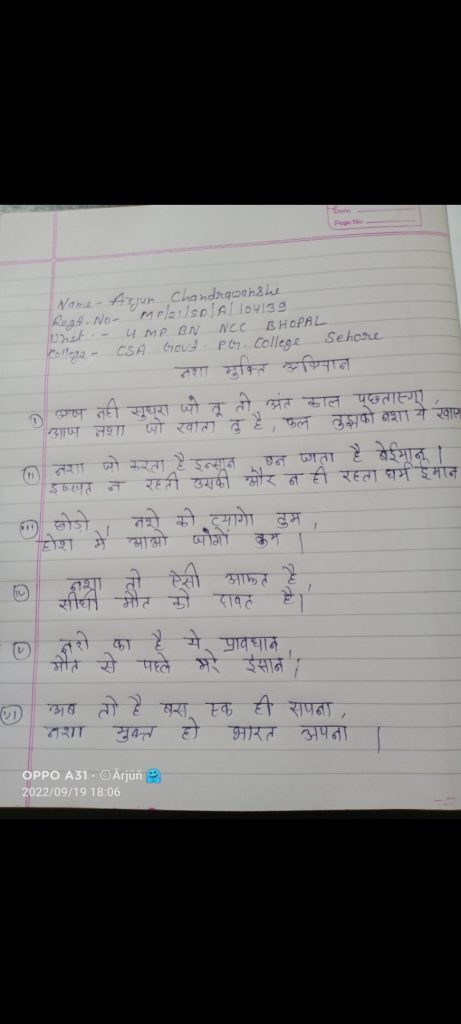 Date
Page No.
Name- Arjun Chandrawanshi
Regt. No- MP/21/SD/A/104139
Unit - 4 MP BN NCC BHOPAL
College- CSA Govt. PG. College Sehore
नशा मुक्ति अभियान
i नही सुधरा जो तू तो अंत काल पछताएगा,
आज नशा जो खाता तु है, कल तुझको नशा ये
ii नशा जो करता है इन्सान बन जाता है बेईमान |
इज्जत न रहती उसकी और न ही रहता धर्म ईमान
iii छोड़ो, नशे को त्यागो तुम,
होश में आओ जागो तुम |
iv नशा तो ऐसी आफत है,
सीधी मौत को दावत है |
v नशे का है ये प्रावधान,
मौत से पहले मरे इंसान |
vi अब तो है बस एक ही सपना,
नशा मुक्त हो भारत अपना |
OPPO A31 · ©Ârjüñ
2022/09/19 18:06